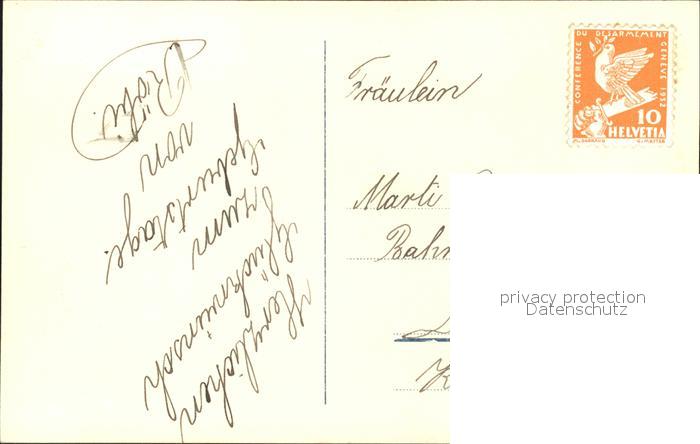 Herzlichen
Glückwunsch
zum
Geburtstage.
von
Rösli.
Fräulein
Marti
Bahn
CONFERENCE DU DESARMEMENT GENEVE 1932
10
HELVETIA
privacy protection
Datenschutz